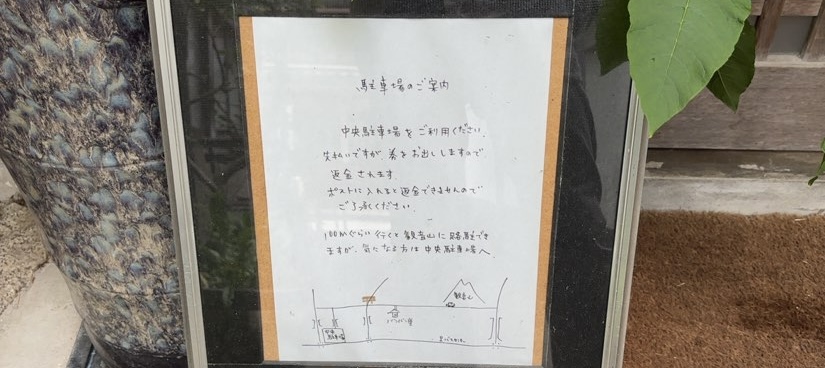 駐車場のご案内
中央駐車場をご利用ください。
先払いですが 券をお出ししますので
返金されます
ポストに入れると返金できませんので
ご了承ください。
100mぐらい行くと観音山に路駐でき
ますが、気になる方は中央駐車場へ。
観音山
中央
駐車場